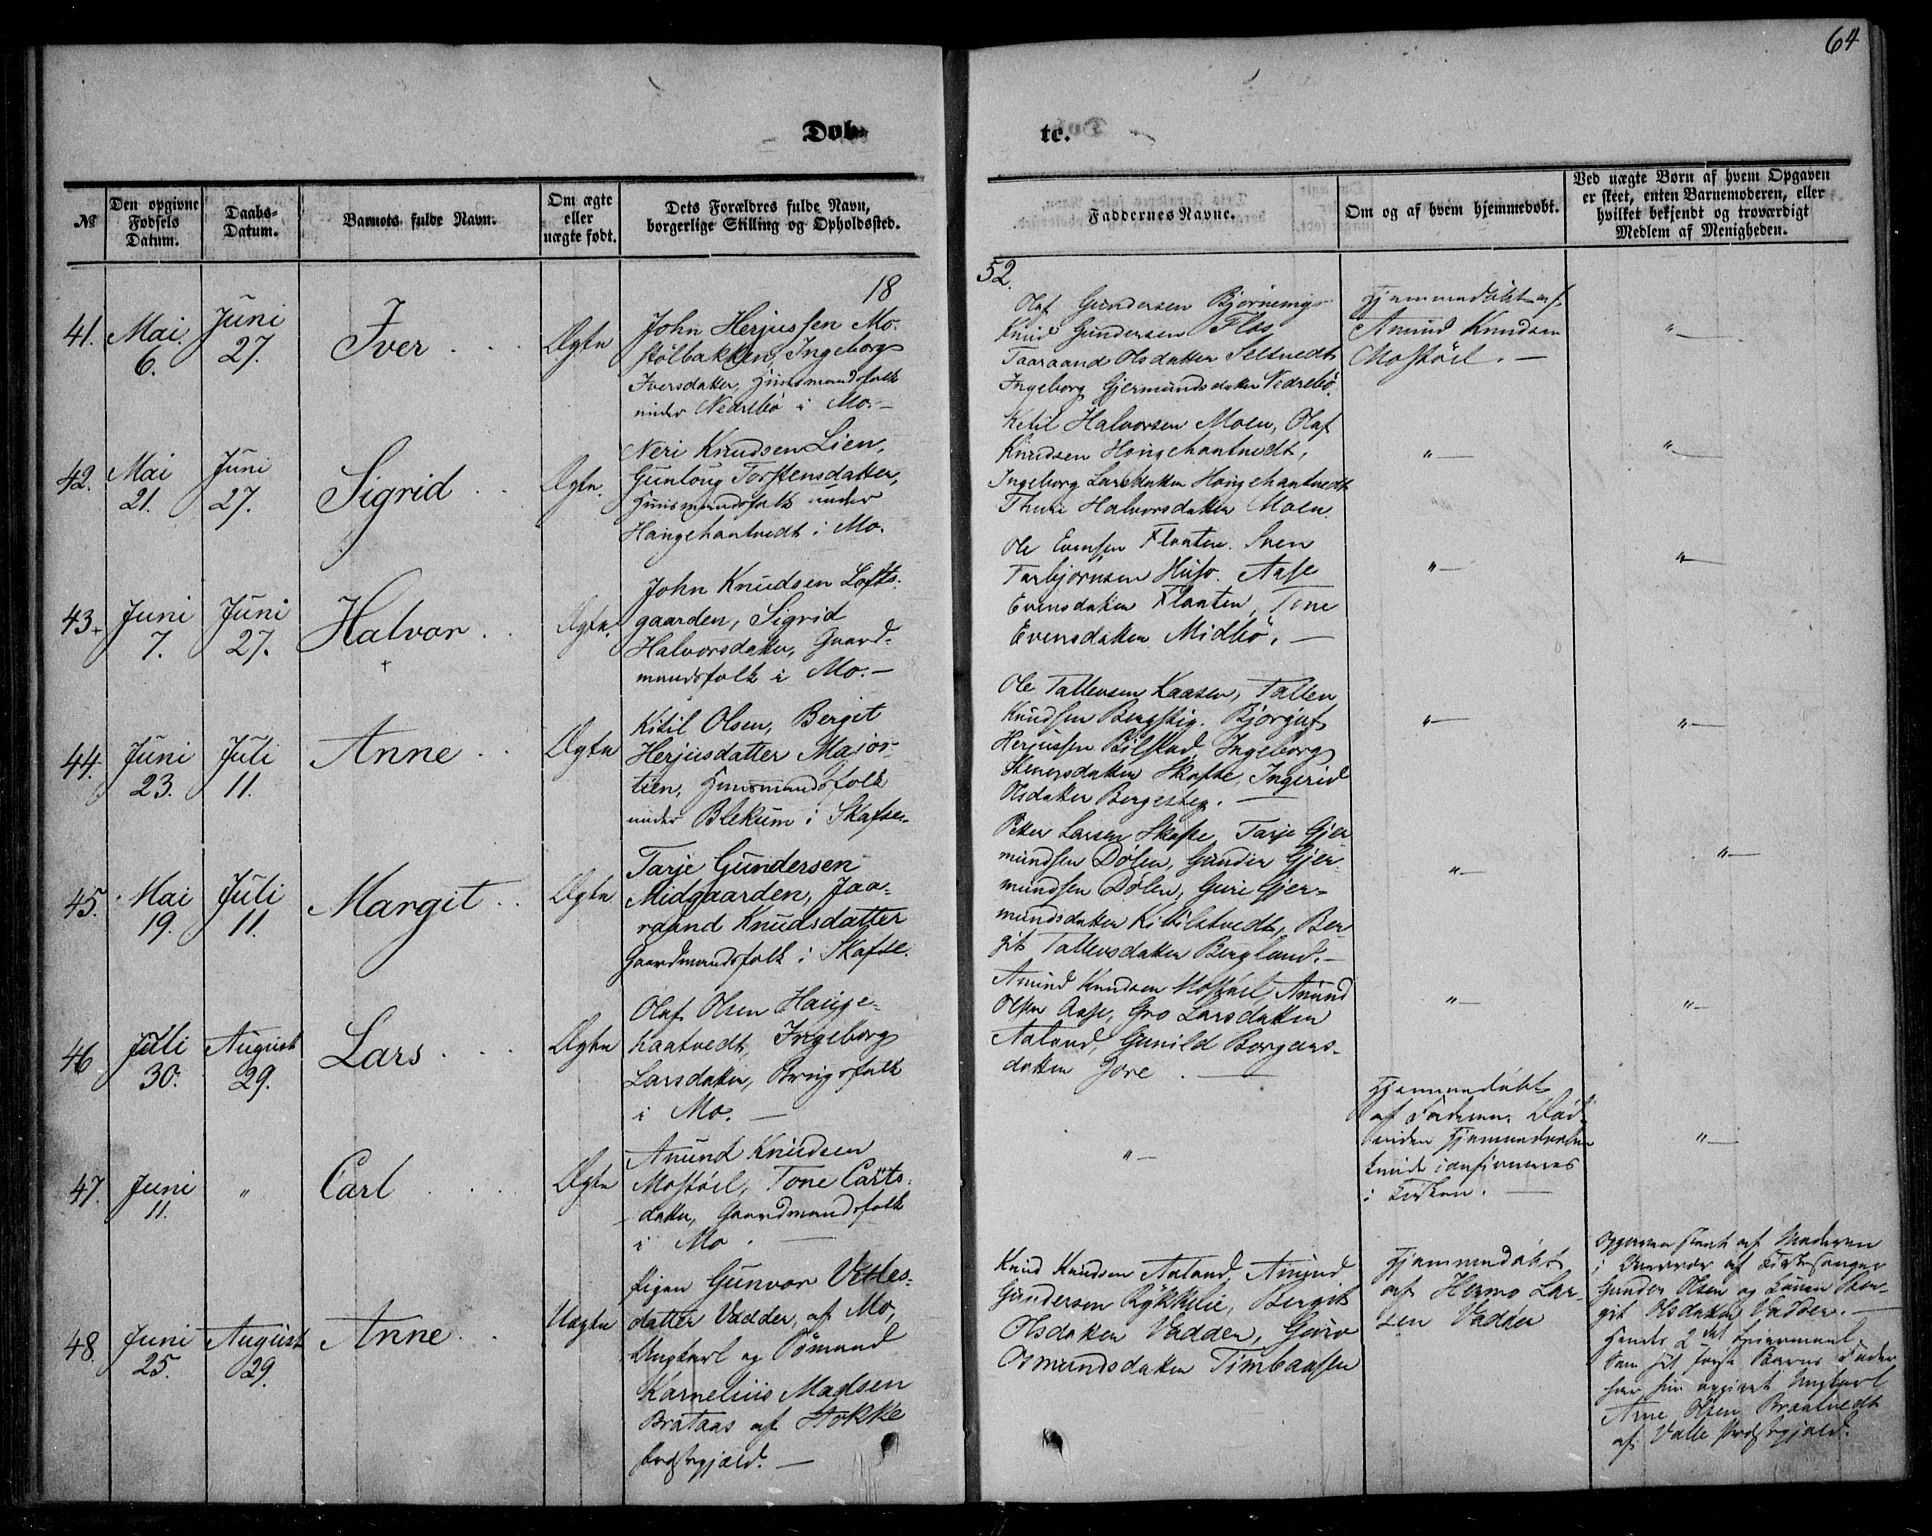 64
Døb-
te.
№
Den opgivne Fødsels Datum.
Daabs-Datum.
Barnets fulde Navn.
Om ægte eller uægte født.
Dets Forældres fulde Navn, borgerlige Stilling og Opholdssted.
Faddernes Navne.
Om og af hvem hjemmedøbt.
Ved uægte Børn af hvem Opgaven er skeet, enten Barnemoderen, eller hvilket bekjendt og troværdigt Medlem af Menigheden.
18
52.
41.
Mai
6.
Juni
27.
Iver
Ægte
John Herjussen Mo-
stølbakken, Ingeborg
Iversdatter, Huusmandsfolk
under Nedrebø i Mo.—
Olaf Gundersen Bjørnemyr
Knud Gundersen Flos
Taaraand Olsdatter Seltvedt
Ingeborg Gjermundsdatter Nedrebø.
Hjemmedøbt af
Amund Knudsen
Mostøil.—
"—
42.
Mai
21.
Juni
27.
Sigrid
Ægte.
Neri Knudsen Lien,
Gunloug Torstensdatter,
Huusmandsfolk under
Haugehaatvedt i Mo.
Ketil Halvorsen Moen, Olaf
Knudsen Haugehaatvedt,
Ingeborg Larsdatter Haugehaatvedt
Thuri Halvorsdatter Moen.
"—
"—
43.
Juni
7.
Juni
27.
Halvor
Ægte.
John Knudsen Lofts-
gaarden, Sigrid
Halvorsdatter, Gaard-
mandsfolk i Mo.—
Ole Evensen Flaaten. Sven
Tarbjørnsen Huso. Aase
Evensdatter Flaaten, Tone
Evensdatter Midbø.—
"—
"—
44.
Juni
23.
Juli
11.
Anne
Ægte
Kitil Olsen, Bergit
Herjusdatter Majors-
tien, Huusmandsfolk
under Blekum i Skafse.
Ole Tallevsen Kaasen, Tallev
Knudsen Bergstig. Bjørguf
Herjussen Bilstad, Ingeborg
Stenersdatter Skafse, Ingerid
Olsdatter Bergesteg.—
"—
"—
45.
Mai
19.
Juli
11.
Margit
Ægte
Tarje Gundersen
Midgaarden, Jaa-
raand Knudsdatter
Gaardmandsfolk i Skafse.
Peter Larsen Skafse, Tarje Gjer-
mundsen Dølen, Gunder Gjer-
mundsen Dølen, Guri Gjer-
mundsdatter Kitilstvedt, Ber-
git Tallevsdatter Bergland.—
"—
"—
46.
Juli
30.
August
29.
Lars
Ægte
Olaf Olsen Hauge-
haatvedt, Ingeborg
Larsdatter, Brugsfolk
i Mo.—
Amund Knudsen Mostøil, Amund
Olsen Aase, Gro Larsdatter
Aaland, Gunild Borgars-
datter Jore.—
"—
"—
47.
Juni
11.
"
Carl
Ægte
Amund Knudsen
Mostøil, Tone Carls-
datter, Gaardmandsfolk
i Mo.—
"—
Hjemmedøbt
af Faderen. Død
inden Hjemmedaaben
kunde confirmeres
i Kirken.—
"—
48.
Juni
25.
August
29.
Anne
Uægte
Pigen Gunvor Vetles-
datter Vadder, af Mo,
Ungkarl og Sømand
Karnelius Madsen
Brataas af Stokke
Præstegjæld.—
Knud Knudsen Aaland, Amund
Gundersen Rykkelie, Bergit
Olsdatter Vadder, Guro
Osmundsdatter Timbaasen
Hjemmedøbt
af Hermo Lar-
sen Vadder
Opgaven skeet af Moderen
i Nærvær af Kirkesanger
Gunder Olsen og Konen Ber-
git Olsdatter Vadder.—
Hendes 2det Leiermaal.
Som sit første Barns Fader
har hun opgivet Ungkarl
Arne Olsen Braatvedt
af Valle Præstegjæld.